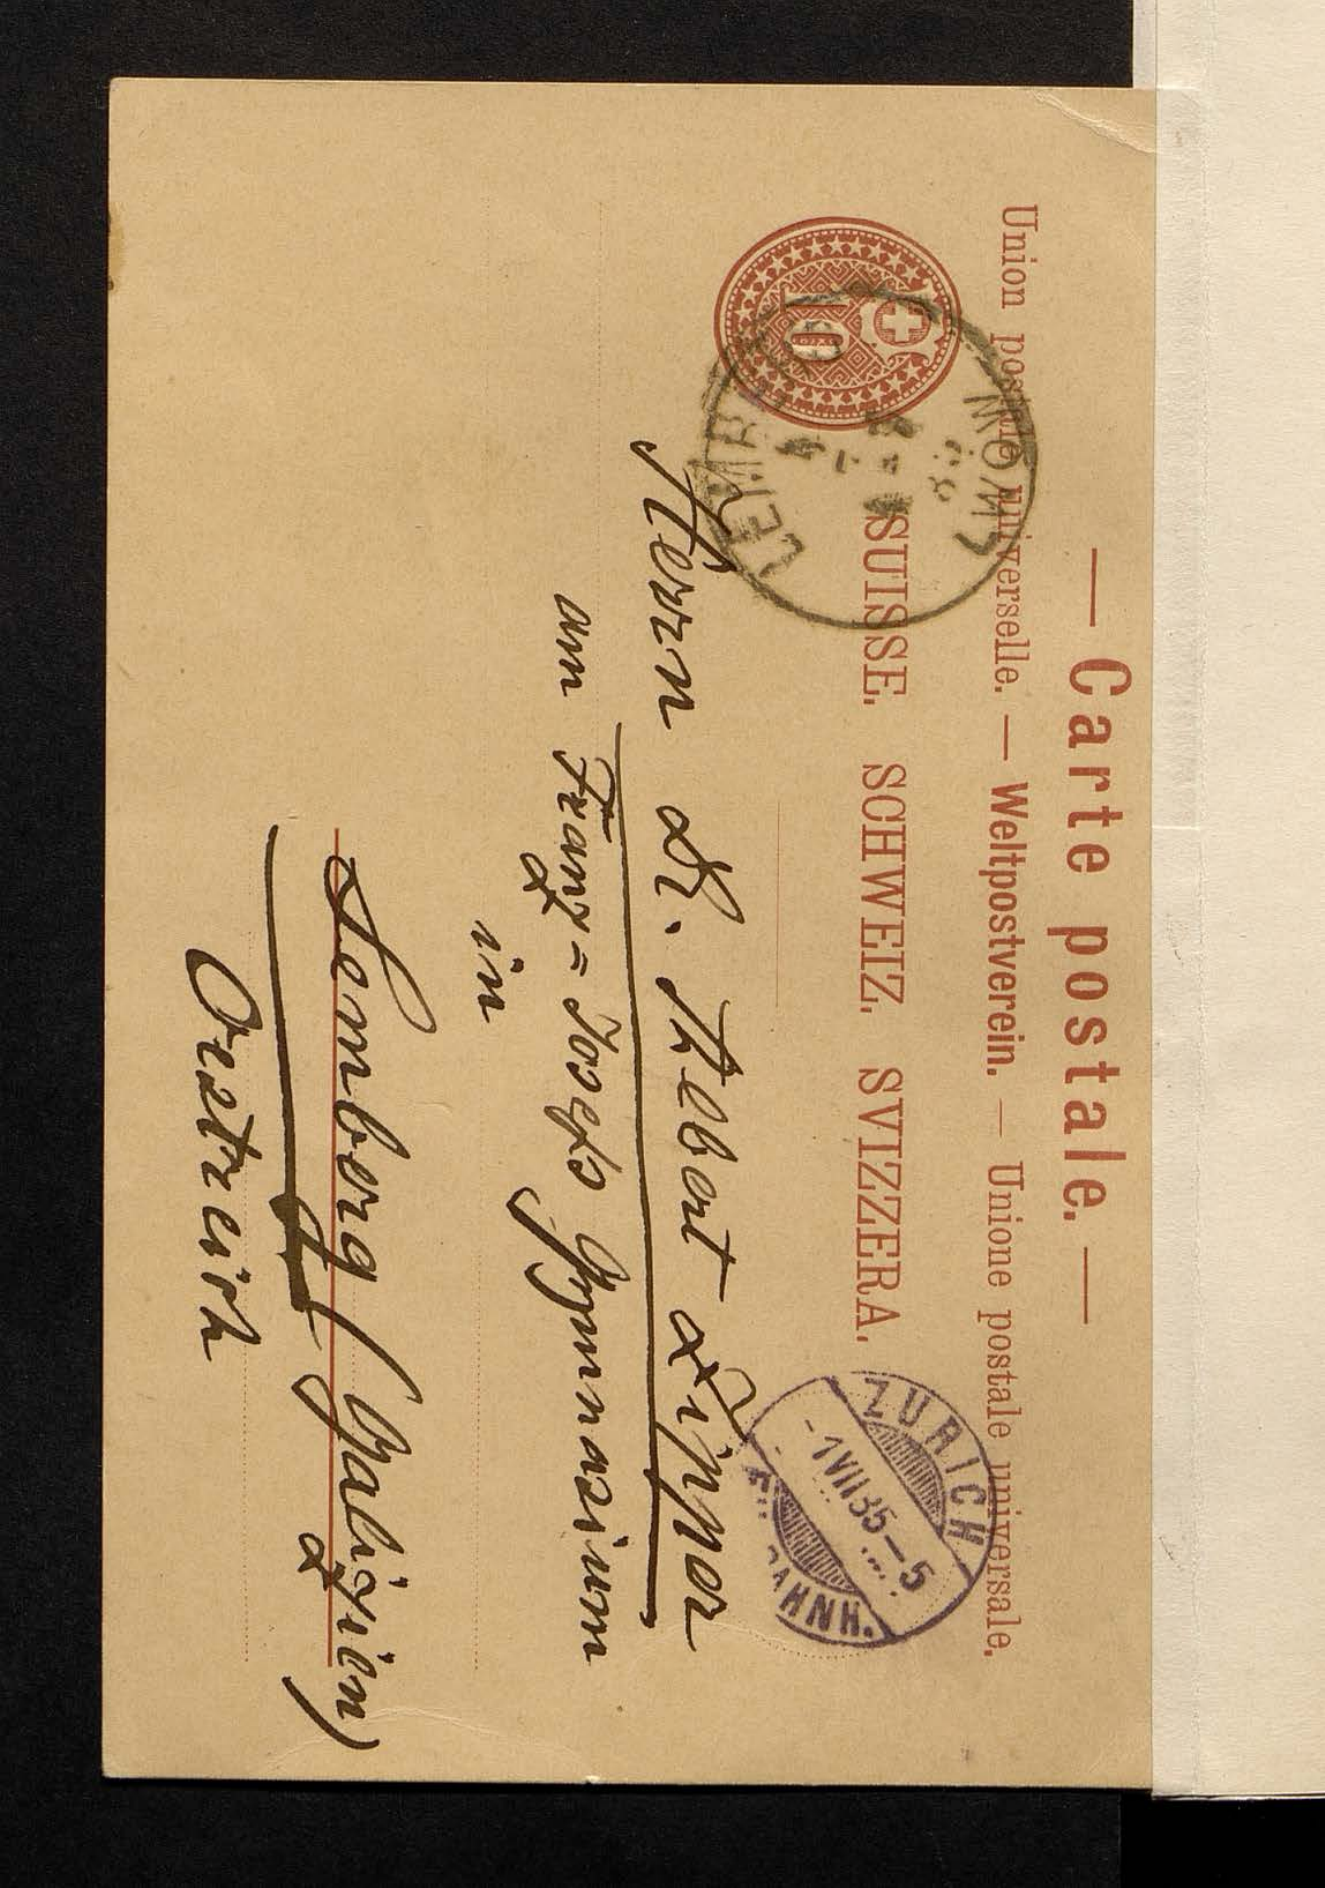 — Carte postale. —
Union postale universelle. — Weltpostverein. — Unione postale universale.
SUISSE. SCHWEIZ. SVIZZERA.
10
LEMBERG
LWÓW
ZÜRICH
-1 VII 85-5
BAHNH.
Herrn Dr. Albert Zipper
am Franz = Josefs Gymnasium
in
Lemberg (Galizien)
Oestreich